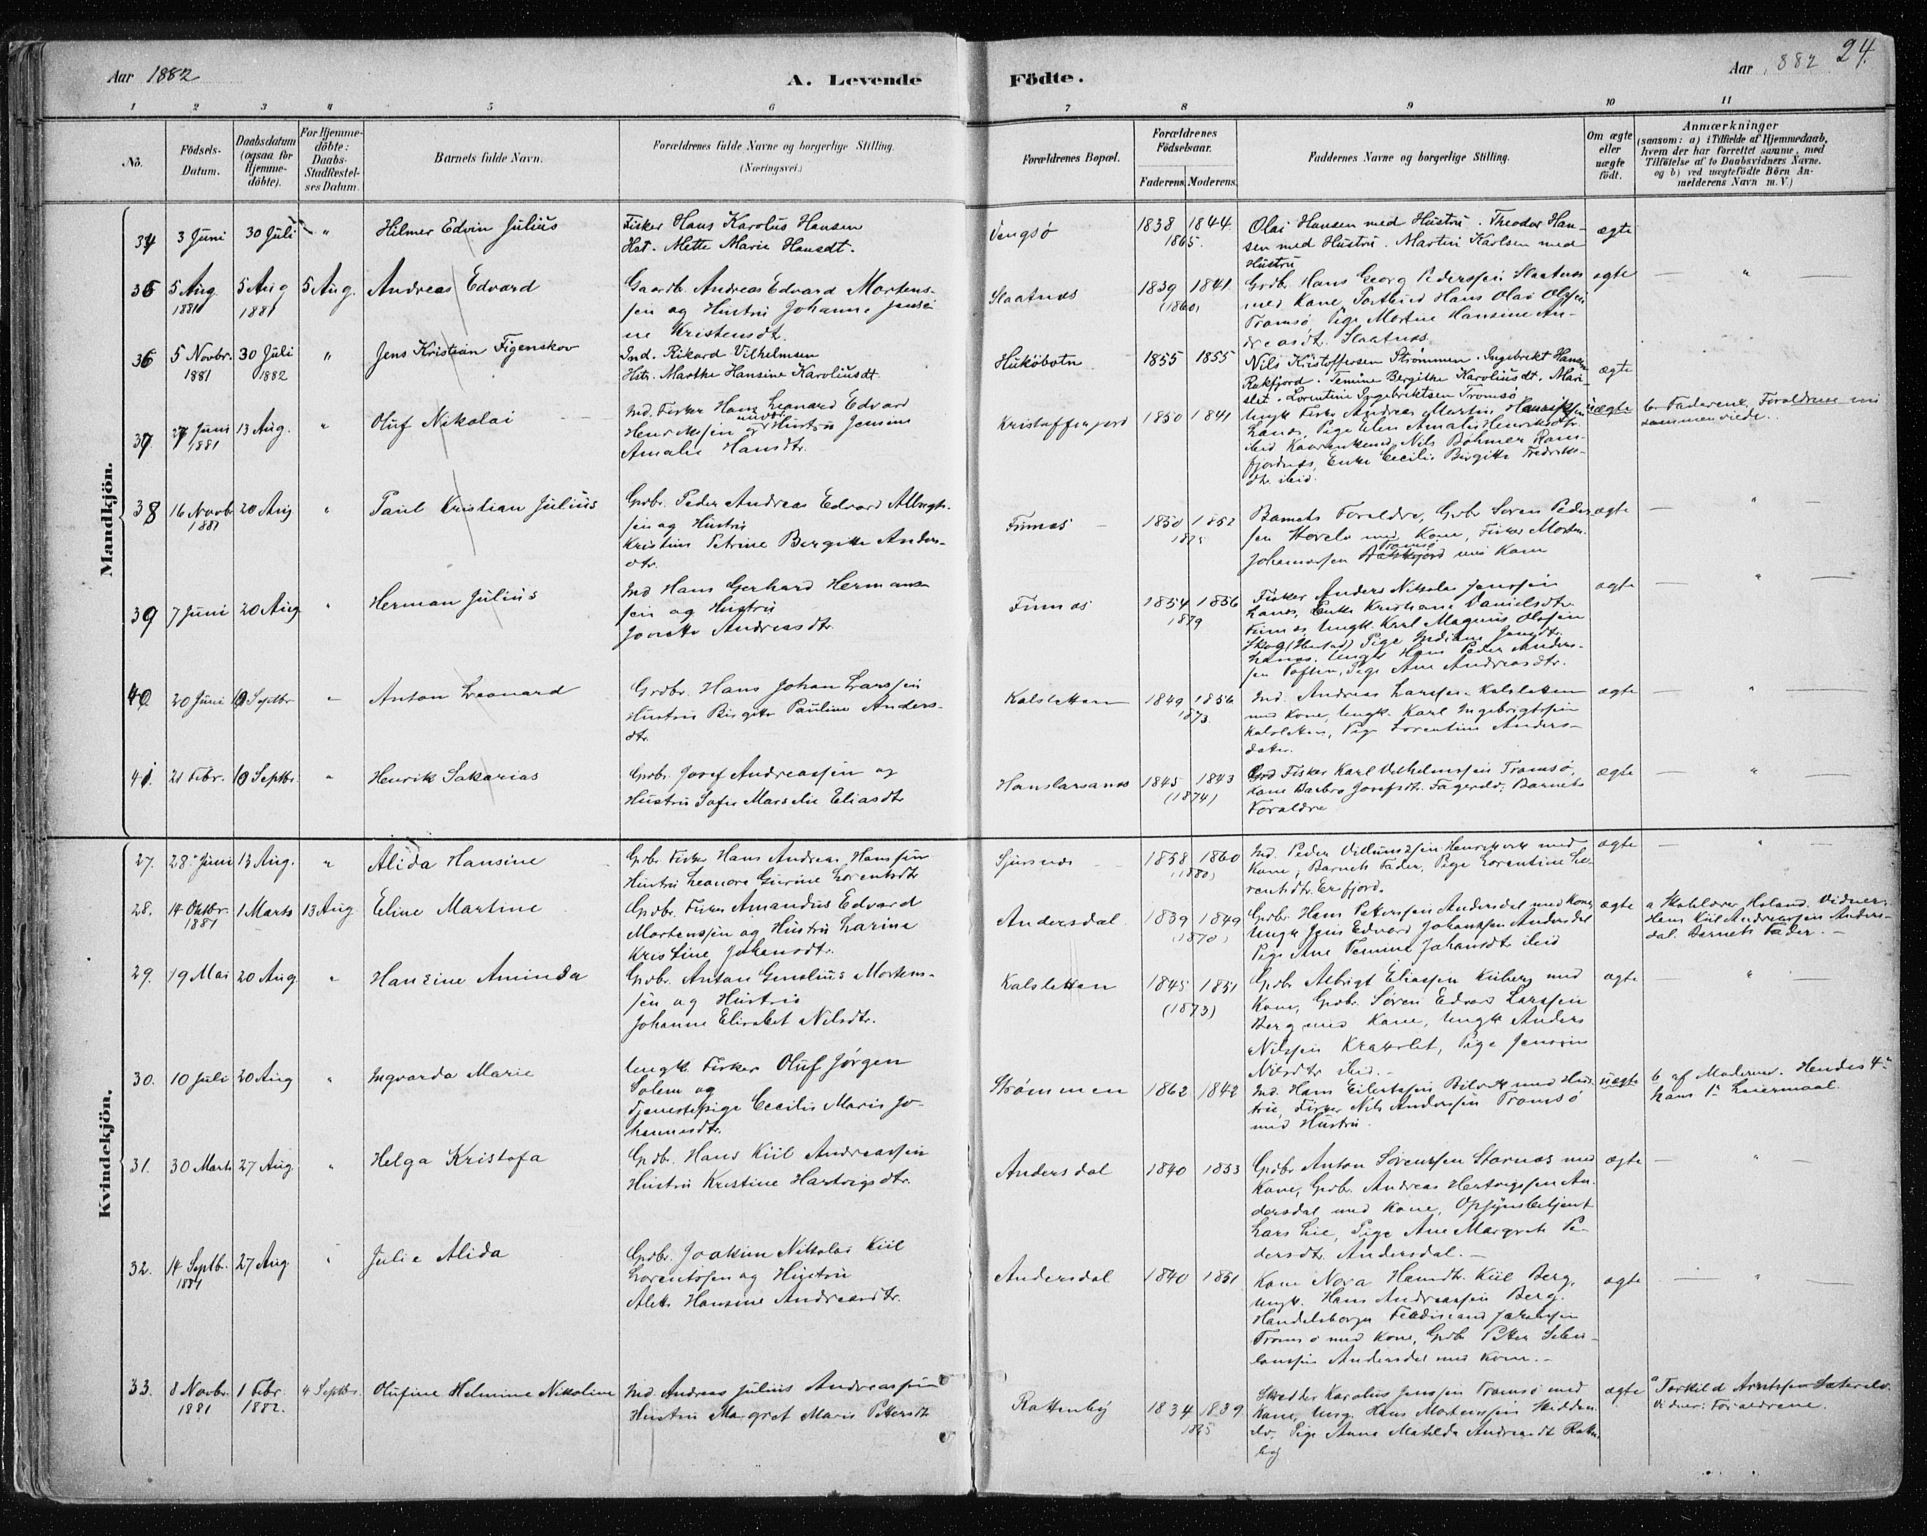 Aar 1882
A. Levende Födte.
Aar 1882
24.
1 2 3 4 5 6 7 8 9 10 11
No.
Födsels-Datum.
Daabsdatum (ogsaa for Hjemme-döbte).
For Hjemme-döbte: Daabs-Stadfæstel-ses Datum.
Barnets fulde Navn.
Forældrenes fulde Navne og borgerlige Stilling. (Næringsvei.)
Forældrenes Bopæl.
Forældrenes Födselsaar.
Faderens. Moderens.
Faddernes Navne og borgerlige Stilling.
Om ægte eller uægte födt.
Anmærkninger
(saasom: a) i Tilfælde af Hjemmedaab, hvem der har forrettet samme, med Tilföielse af to Daabsvidners Navne. og b) ved uægtefödte Börn Anmelderens Navn m. V.)
Mandkjön.
34 3 Juni 30 Juli " Hilmer Edvin Julius
Fisker Hans Karolus Hansen
Hst. Mette Marie Hansdt.
Vengsø 1838 1844 1865.
Olai Hansen med Hustru. Theodor Han-
sen med Hustru. Martin Karlsen med
Hustru
ægte
35 5 Aug 1881 5 Aug 1881 5 Aug. Andreas Edvard
Gaardb. Andreas Edvard Mortens-
sen og Hustru Johanne Jensi-
ne Kristensdt.
Slaatnæs 1839 1841 (1860)
Grdbr. Hans Georg Pederssen Slaatnæs
med Kone, Hans Olai Olssen
Tromsø, Pige Martine Hansine An-
dreasdt. Slaatnæs.
ægte — " —
36 5 Novbr. 1881 30 Juli 1882 " Jens Kristian Figenskov
Ind. Rikard Vilhelmsen
Hst. Marthe Hansine Karoliusdt.
Hukøbotn 1855 1855
Nils Kristoffersen Strømmen. Ingebrikt Hansen
Rakfjord. Temine Bergithe Karoliusdt. Mari-
slet. Lorentine Ingebriktsen Tromsø
ægte
37 27 Juni 1881 13 Aug. " Oluf Nikolai
Ind. Fisker Hans Leonard Edvard
Henrikssen og nuvær. Hustru Jensine
Amalie Hansdtr.
Kristoffersjord 1850 1841
Ungk. Fisker Andreas Martin Henrikssen
Lanes, Pige Elen Amalie Henriksdtr.
ibid Nils Bøhmer Rams-
fjordnæs, Enke Cecilie Birgitte Fredriks-
dtr. ibid.
uægte
b. Faderen. Forældrene nu
sammenviede.
38 16 Novbr 1881 20 Aug " Paul Kristian Julius
Grdbr. Peder Andreas Edvard Albrigts-
sen og Hustru
Kristine Petrine Bergitte Anders-
dtr.
Finnes 1850 1852 1875
Barnets Forældre, Grdbr Søren Peder-
sen med Kone, Fisker Morten
Johannessen Tromsø med Kone
ægte — " —
39 7 Juni 20 Aug " Herman Julius
Ind Hans Gerhard Herman-
sen og Hustru
Jonette Andreasdtr.
Finnes 1854 1856 1879
Fisker Anders Nikolai Jenssen
Lanes, Enke Kristiane Danielsdtr.
Finnes, Ungk. Karl Magnus Olssen
Skog, Pige Jensdtr.
Lanes, Ungk Hans Peder Anders-
sen Toften, Pige Ane Andreasdtr.
ægte — " —
40 20 Juni 10 Septbr " Anton Leonard
Grdbr. Hans Johan Larssen
Hustru Birgitte Pauline Anders-
dtr.
Kalsletten 1849 1856 1873
Ind. Andreas Larssen Kalsletten
med Kone, Ungk. Karl Ingebrigtssen
Kalsletten, Pige Lorentine Anders-
datr.
ægte — " —
41. 21 Febr. 10 Septbr. " Henrik Sakarias
Grdbr. Josef Andreassen og
Hustru Sofie Marselie Eliasdtr
Hanslarsanæs 1845 1843 (1874)
Fisker Karl Vilhelmssen Tromsø,
Kone Barbro Josefsdtr. Fagerelv, Barnets
Forældre
ægte — " —
Kvindekjön.
27. 28 Juni 13 Aug. " Alida Hansine
Grdbr. Fisker Hans Andreas Hanssen
Hustru Leonore Gurine Lorentsdtr
Sjursnæs 1858 1860 (1880)
Ind. Peder Villumsen Henrikvik med
Kone, Barnets Fader, Pige Lorentine Lo-
rentsdtr. Erfjord.
ægte — "
28. 14 Oktbr. 1881 1 Marts 13 Aug Eline Martine
Grdbr. Fisker Amandus Edvard
Mortenssen og Hustru Larine
Kristine Johansdtr.
Andersdal 1839 1849 (1870)
Grdbr. Hans Peterssen Andersdal med Kone,
Ungk Jens Edvard Johanssen Andersdal
Pige Ane Temine Johansdtr ibid
ægte
a Skolelærer Holand. Vidner:
Hans Kiil Andreassen Anders-
dal. Barnets Fader. —
29. 19 Mai 20 Aug " Hansine Aminda
Grdbr. Anton Mortens-
sen og Hustru
Johanne Elisabet Nilsdtr.
Kalsletten 1845 1851 (1873)
Grdbr Albrigt Eliassen Kiiberg med
Kone, Grdbr. Søren Edvard Larssen
Berg med Kone, Ungk Anders
Nilssen Krakslet, Pige Jensine
Nilsdtr ibid. —
ægte — " —
30. 10 Juli 20 Aug " Ingvarda Marie
Ungk. Fisker Oluf Jørgen
Solem og
Tjenestepige Cecilie Marie Jo-
hannesdtr.
Strømmen 1862 1842
Ind. Hans Eilertssen med Hus-
tru, Fisker Nils Anderssen Tromsø
med Hustru.
uægte
b af Moderen. Hendes 4de
hans 1ste Leiermaal.
31. 30 Marts 27 Aug " Helga Kristofa
Grdbr. Hans Kiil Andreassen
Hustru Kristine Hartvigsdtr.
Andersdal 1840 1853
Grdbr Anton Sørenssen Stornæs med
Kone, Grdbr. Andreas Hertvigssen An-
dersdal med Kone, Opsynsbetjent
Lars Lie, Pige Ane Margrete Pe-
dersdtr. Andersdal. —
ægte — " —
32. 14 Septb. 1881 27 Aug. " Julie Alida
Grdbr. Joakim Nikolai Kiil
Lorentssen og Hustru
Alette Hansine Andreasdtr.
Andersdal 1840 1851
Kone Nora Hansdtr. Kiil Berg,
Ungk. Hans Andreassen Berg.
Handelsborger Ferdinand Jakobsen
Tromsø med Kone, Grdbr Petter
Andersdal med Kone. —
ægte — " —
33. 8 Novbr. 1881 1 Febr. 1882. 4 Septbr. Olufine Helmine Nikoline
Ind. Andreas Julius Andreassen
Hustru Margret Marie Petersdtr
Rottenby 1834 1839 1865
Skrædder Karolus Jenssen Tromsø med
Kone, Ung. Hans Mortenssen Skidden-
elv, Pige Anna Matilda Andreasdt Rotten-
by
ægte
a Torkild Arntssen Sæterelv.
Vidner: Forældrene.